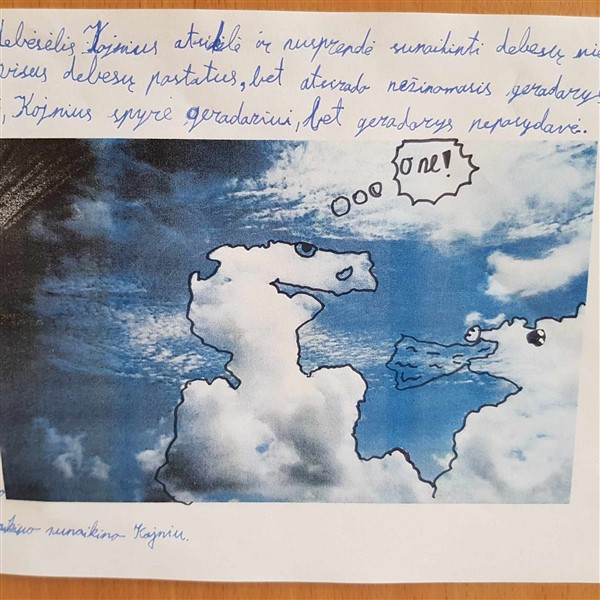 debesėlis Kojnius atsikėlė ir nusprendė sunaikinti debesų
visus debesų pastatus, bet atvrado nežinomasis geradarys
Kojnius spyrė geradariui, bet geradarys nepasydavė.
O ne!
sunaikino Kojniu.